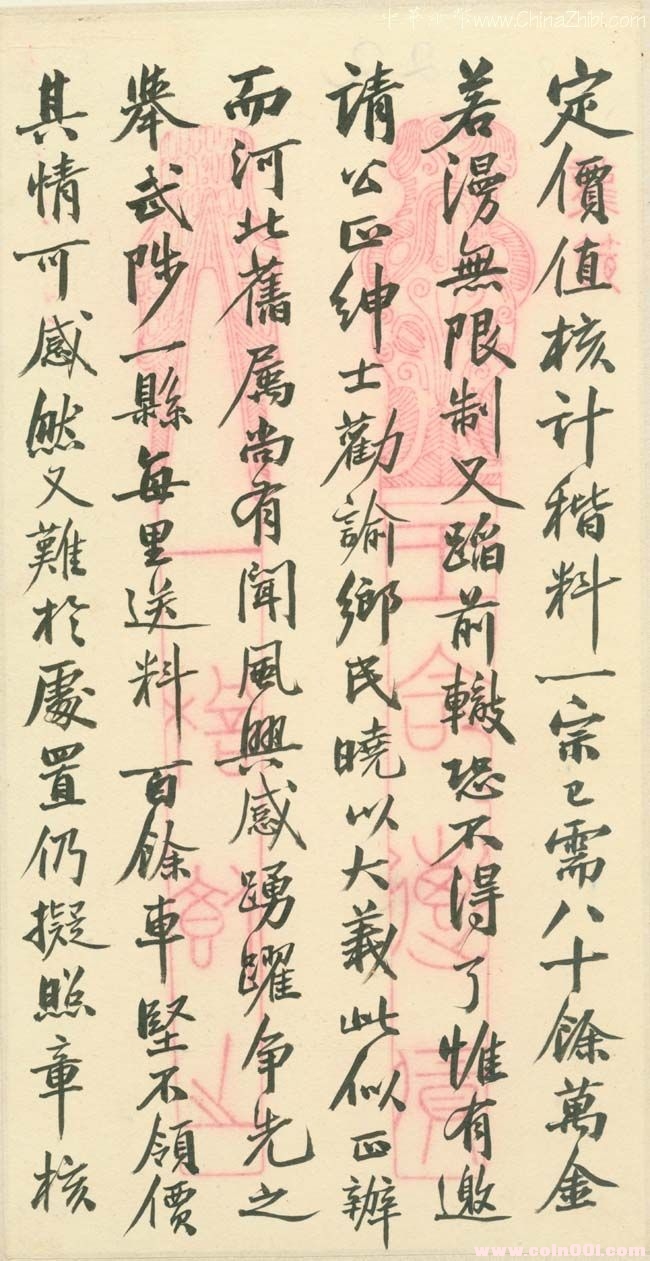 中華紙幣 www.ChinaZhibi.com
定價值核計稭料一宗已需八十餘萬金
若漫無限制又蹈前轍恐不得了惟有邀
請公正紳士勸諭鄉民曉以大義此似正辦
而河北舊屬尚有聞風興感踴躍爭先之
舉武陟一縣每里送料百餘車堅不領價
其情可感然又難於處置仍擬照章核
www.coin001.com